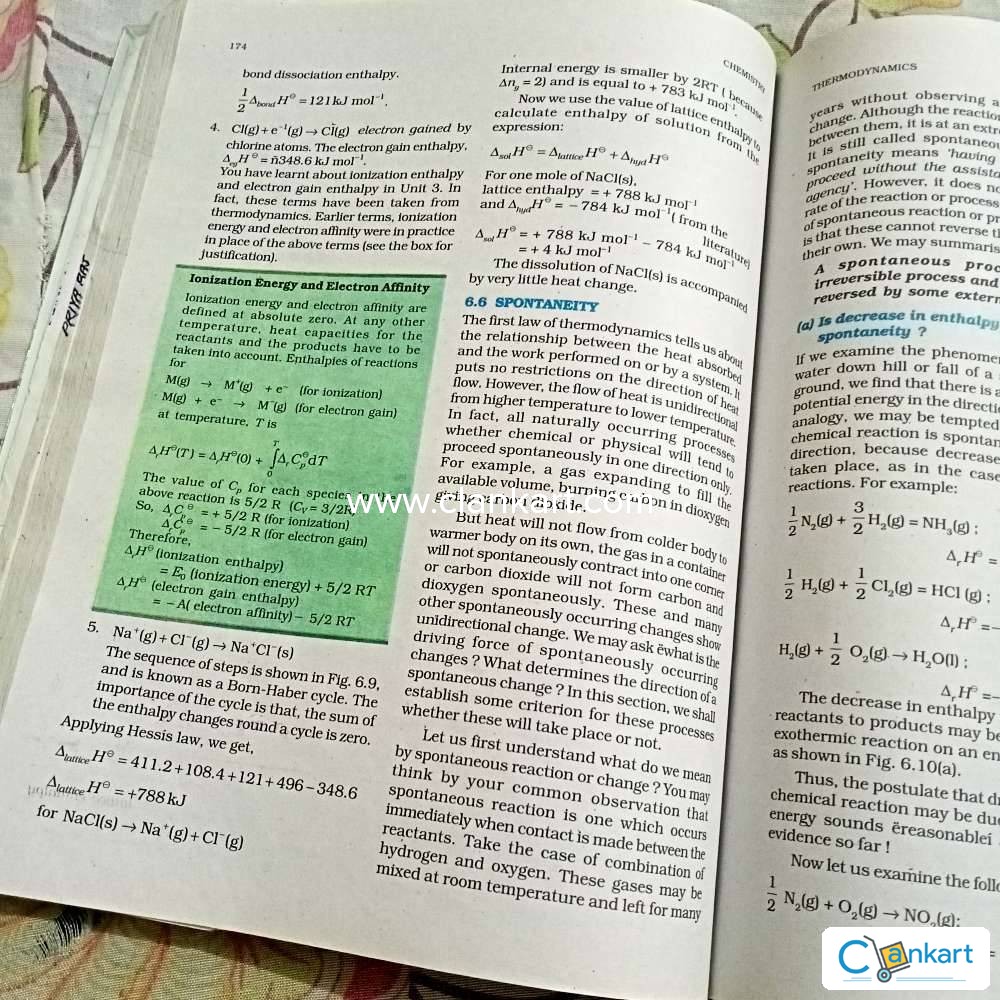 174
bond dissociation enthalpy.
1/2 Δbond H⊖ = 121 kJ mol⁻¹.
4. Cl(g) + e⁻¹(g) → Cl̈(g) electron gained by
chlorine atoms. The electron gain enthalpy,
Δeg H⊖ = ñ348.6 kJ mol⁻¹.
You have learnt about ionization enthalpy
and electron gain enthalpy in Unit 3. In
fact, these terms have been taken from
thermodynamics. Earlier terms, ionization
energy and electron affinity were in practice
in place of the above terms (see the box for
justification).
Ionization Energy and Electron Affinity
Ionization energy and electron affinity are
defined at absolute zero. At any other
temperature, heat capacities for the
reactants and the products have to be
taken into account. Enthalpies of reactions
for
M(g) → M⁺(g) + e⁻ (for ionization)
M(g) + e⁻ → M⁻(g) (for electron gain)
at temperature, T is
ΔrH⊖(T) = ΔrH⊖(0) + ∫₀ᵀ ΔrCp⊖ dT
The value of Cp for each species in the
above reaction is 5/2 R (CV = 3/2R)
So, ΔrCp⊖ = + 5/2 R (for ionization)
ΔrCp⊖ = – 5/2 R (for electron gain)
Therefore,
ΔrH⊖ (ionization enthalpy)
= E₀ (ionization energy) + 5/2 RT
ΔrH⊖ (electron gain enthalpy)
= – A( electron affinity) – 5/2 RT
5. Na⁺(g) + Cl⁻(g) → Na⁺Cl⁻(s)
The sequence of steps is shown in Fig. 6.9,
and is known as a Born-Haber cycle. The
importance of the cycle is that, the sum of
the enthalpy changes round a cycle is zero.
Applying Hessís law, we get,
Δlattice H⊖ = 411.2 + 108.4 + 121 + 496 – 348.6
Δlattice H⊖ = +788 kJ
for NaCl(s) → Na⁺(g) + Cl⁻(g)
CHEMISTRY
Internal energy is smaller by 2RT ( because
Δng = 2) and is equal to + 783 kJ mol⁻¹.
Now we use the value of lattice enthalpy to
calculate enthalpy of solution from the
expression:
Δsol H⊖ = Δlattice H⊖ + Δhyd H⊖
For one mole of NaCl(s),
lattice enthalpy = + 788 kJ mol⁻¹
and ΔhydH⊖ = – 784 kJ mol⁻¹( from the
literature)
Δsol H⊖ = + 788 kJ mol⁻¹ – 784 kJ mol⁻¹
= + 4 kJ mol⁻¹
The dissolution of NaCl(s) is accompanied
by very little heat change.
6.6 SPONTANEITY
The first law of thermodynamics tells us about
the relationship between the heat absorbed
and the work performed on or by a system. It
puts no restrictions on the direction of heat
flow. However, the flow of heat is unidirectional
from higher temperature to lower temperature.
In fact, all naturally occurring processes
whether chemical or physical will tend to
proceed spontaneously in one direction only.
For example, a gas expanding to fill the
available volume, burning carbon in dioxygen
giving carbon dioxide.
But heat will not flow from colder body to
warmer body on its own, the gas in a container
will not spontaneously contract into one corner
or carbon dioxide will not form carbon and
dioxygen spontaneously. These and many
other spontaneously occurring changes show
unidirectional change. We may ask ëwhat is the
driving force of spontaneously occurring
changes ? What determines the direction of a
spontaneous change ? In this section, we shall
establish some criterion for these processes
whether these will take place or not.
Let us first understand what do we mean
by spontaneous reaction or change ? You may
think by your common observation that
spontaneous reaction is one which occurs
immediately when contact is made between the
reactants. Take the case of combination of
hydrogen and oxygen. These gases may be
mixed at room temperature and left for many
THERMODYNAMICS
years without observing a
change. Although the reaction
between them, it is at an extre
It is still called spontaneou
spontaneity means 'having
proceed without the assista
agency'. However, it does no
rate of the reaction or process
of spontaneous reaction or pr
is that these cannot reverse th
their own. We may summaris
A spontaneous proc
irreversible process and
reversed by some extern
(a) Is decrease in enthalpy
spontaneity ?
If we examine the phenomen
water down hill or fall of a
ground, we find that there is a
potential energy in the directi
analogy, we may be tempted
chemical reaction is spontan
direction, because decrease
taken place, as in the case
reactions. For example:
1/2 N₂(g) + 3/2 H₂(g) = NH₃(g) ;
Δr H⊖ =
1/2 H₂(g) + 1/2 Cl₂(g) = HCl (g) ;
Δr H⊖ = –
H₂(g) + 1/2 O₂(g) → H₂O(l) ;
Δr H⊖ = –
The decrease in enthalpy
reactants to products may be
exothermic reaction on an en
as shown in Fig. 6.10(a).
Thus, the postulate that dr
chemical reaction may be due
energy sounds ëreasonableí
evidence so far !
Now let us examine the follo
1/2 N₂(g) + O₂(g) → NO₂(g);
=
PRIYA RAJ
www.clankart.com
Clankart